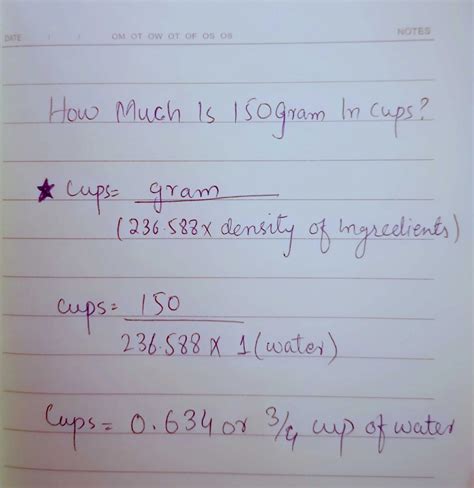 DATE / / OM OT OW OT OF OS OS NOTES
How Much Is 150gram In Cups?
★ Cups= gram
(236.588 x density of Ingredients)
Cups= 150
236.588 x 1 (water)
Cups= 0.634 or 3/4 cup of water